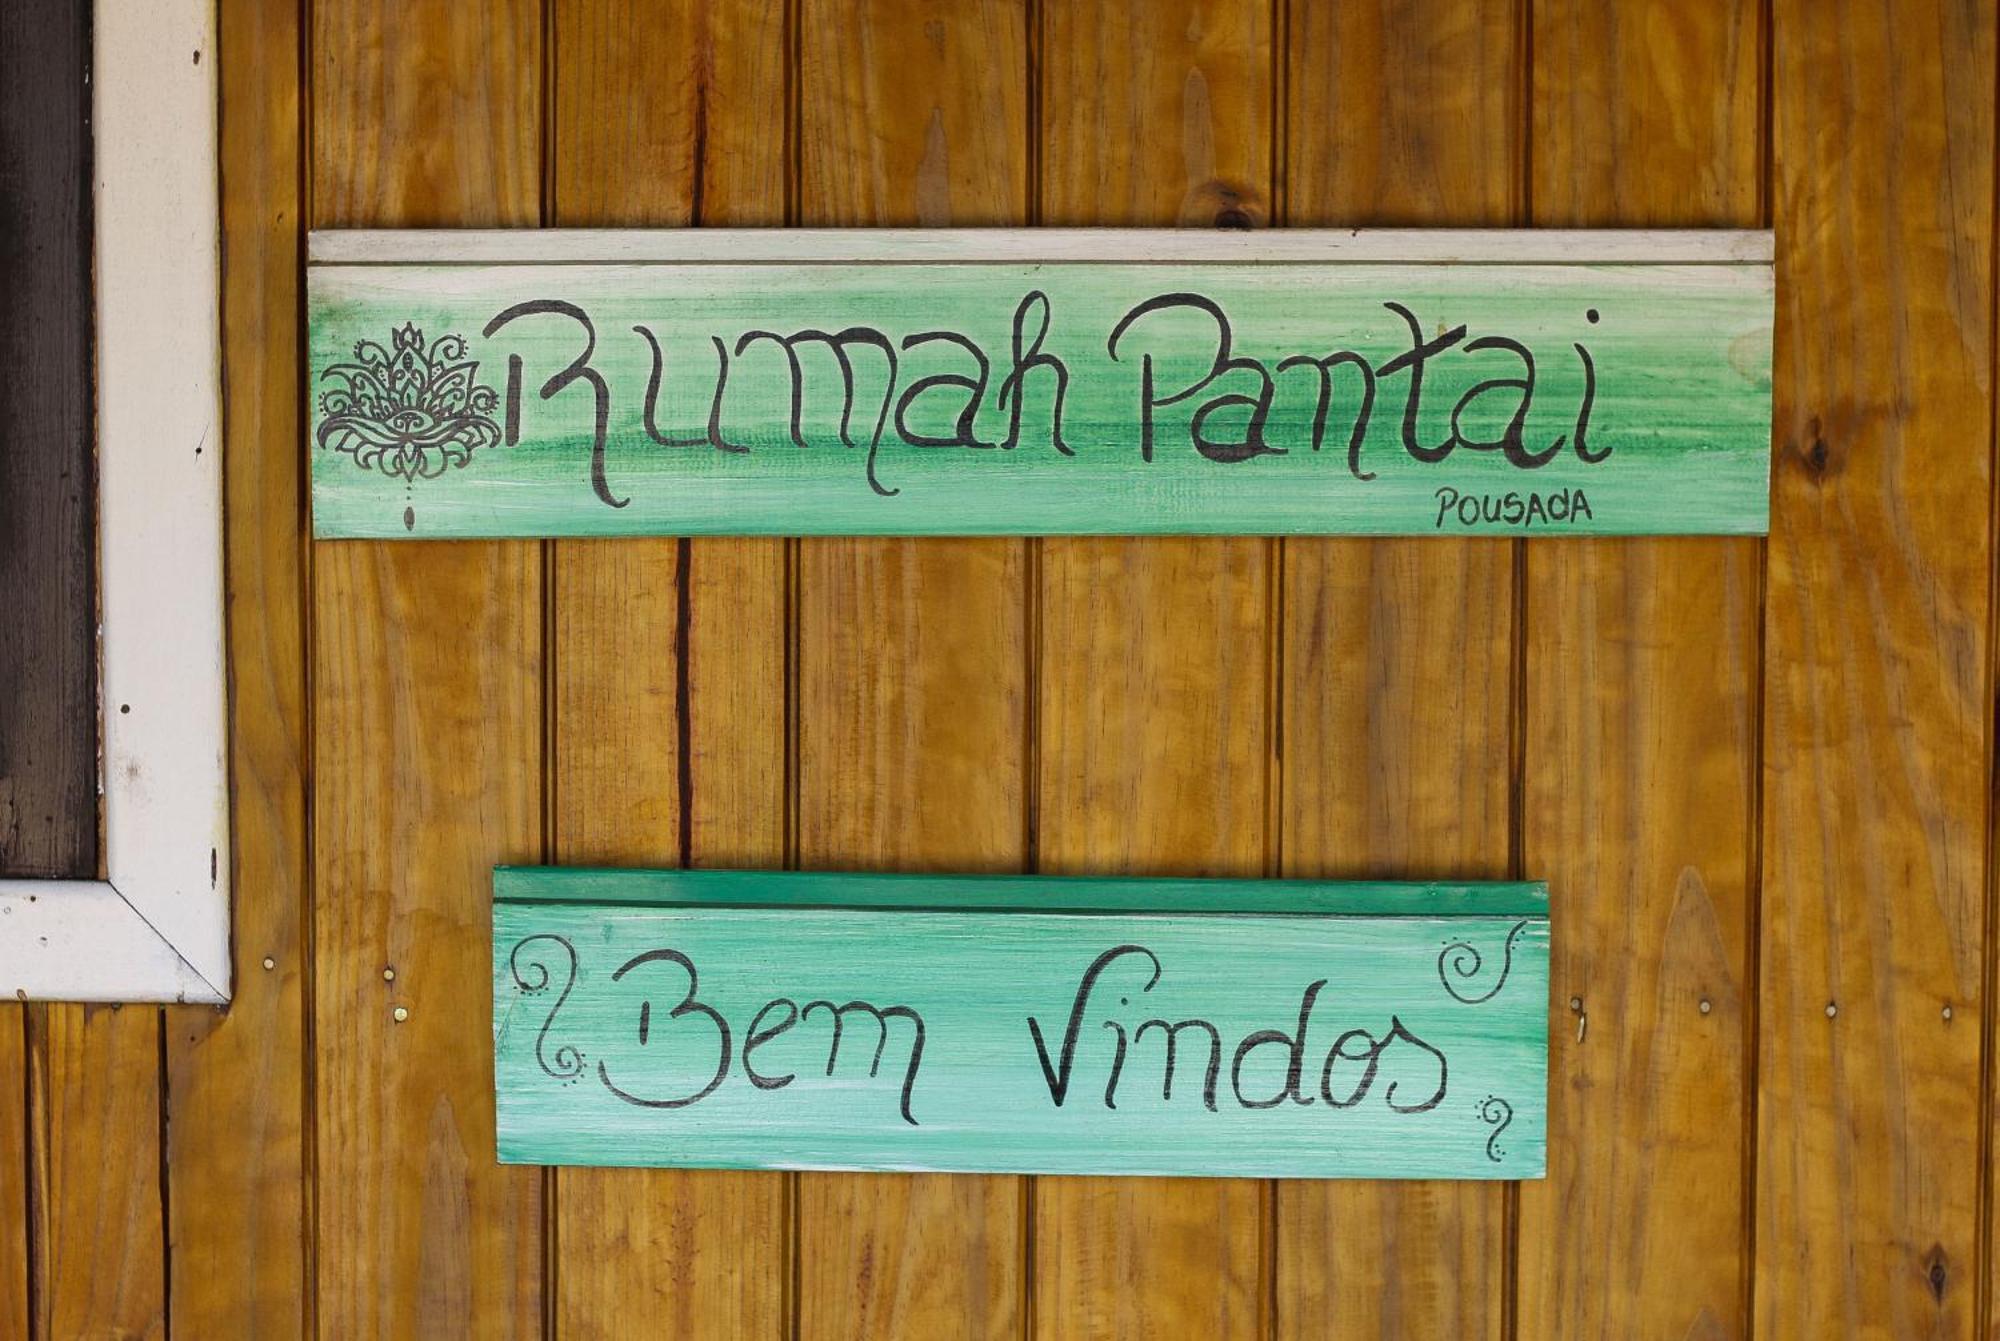 Rumah Pantai
POUSAdA
Bem Vindos